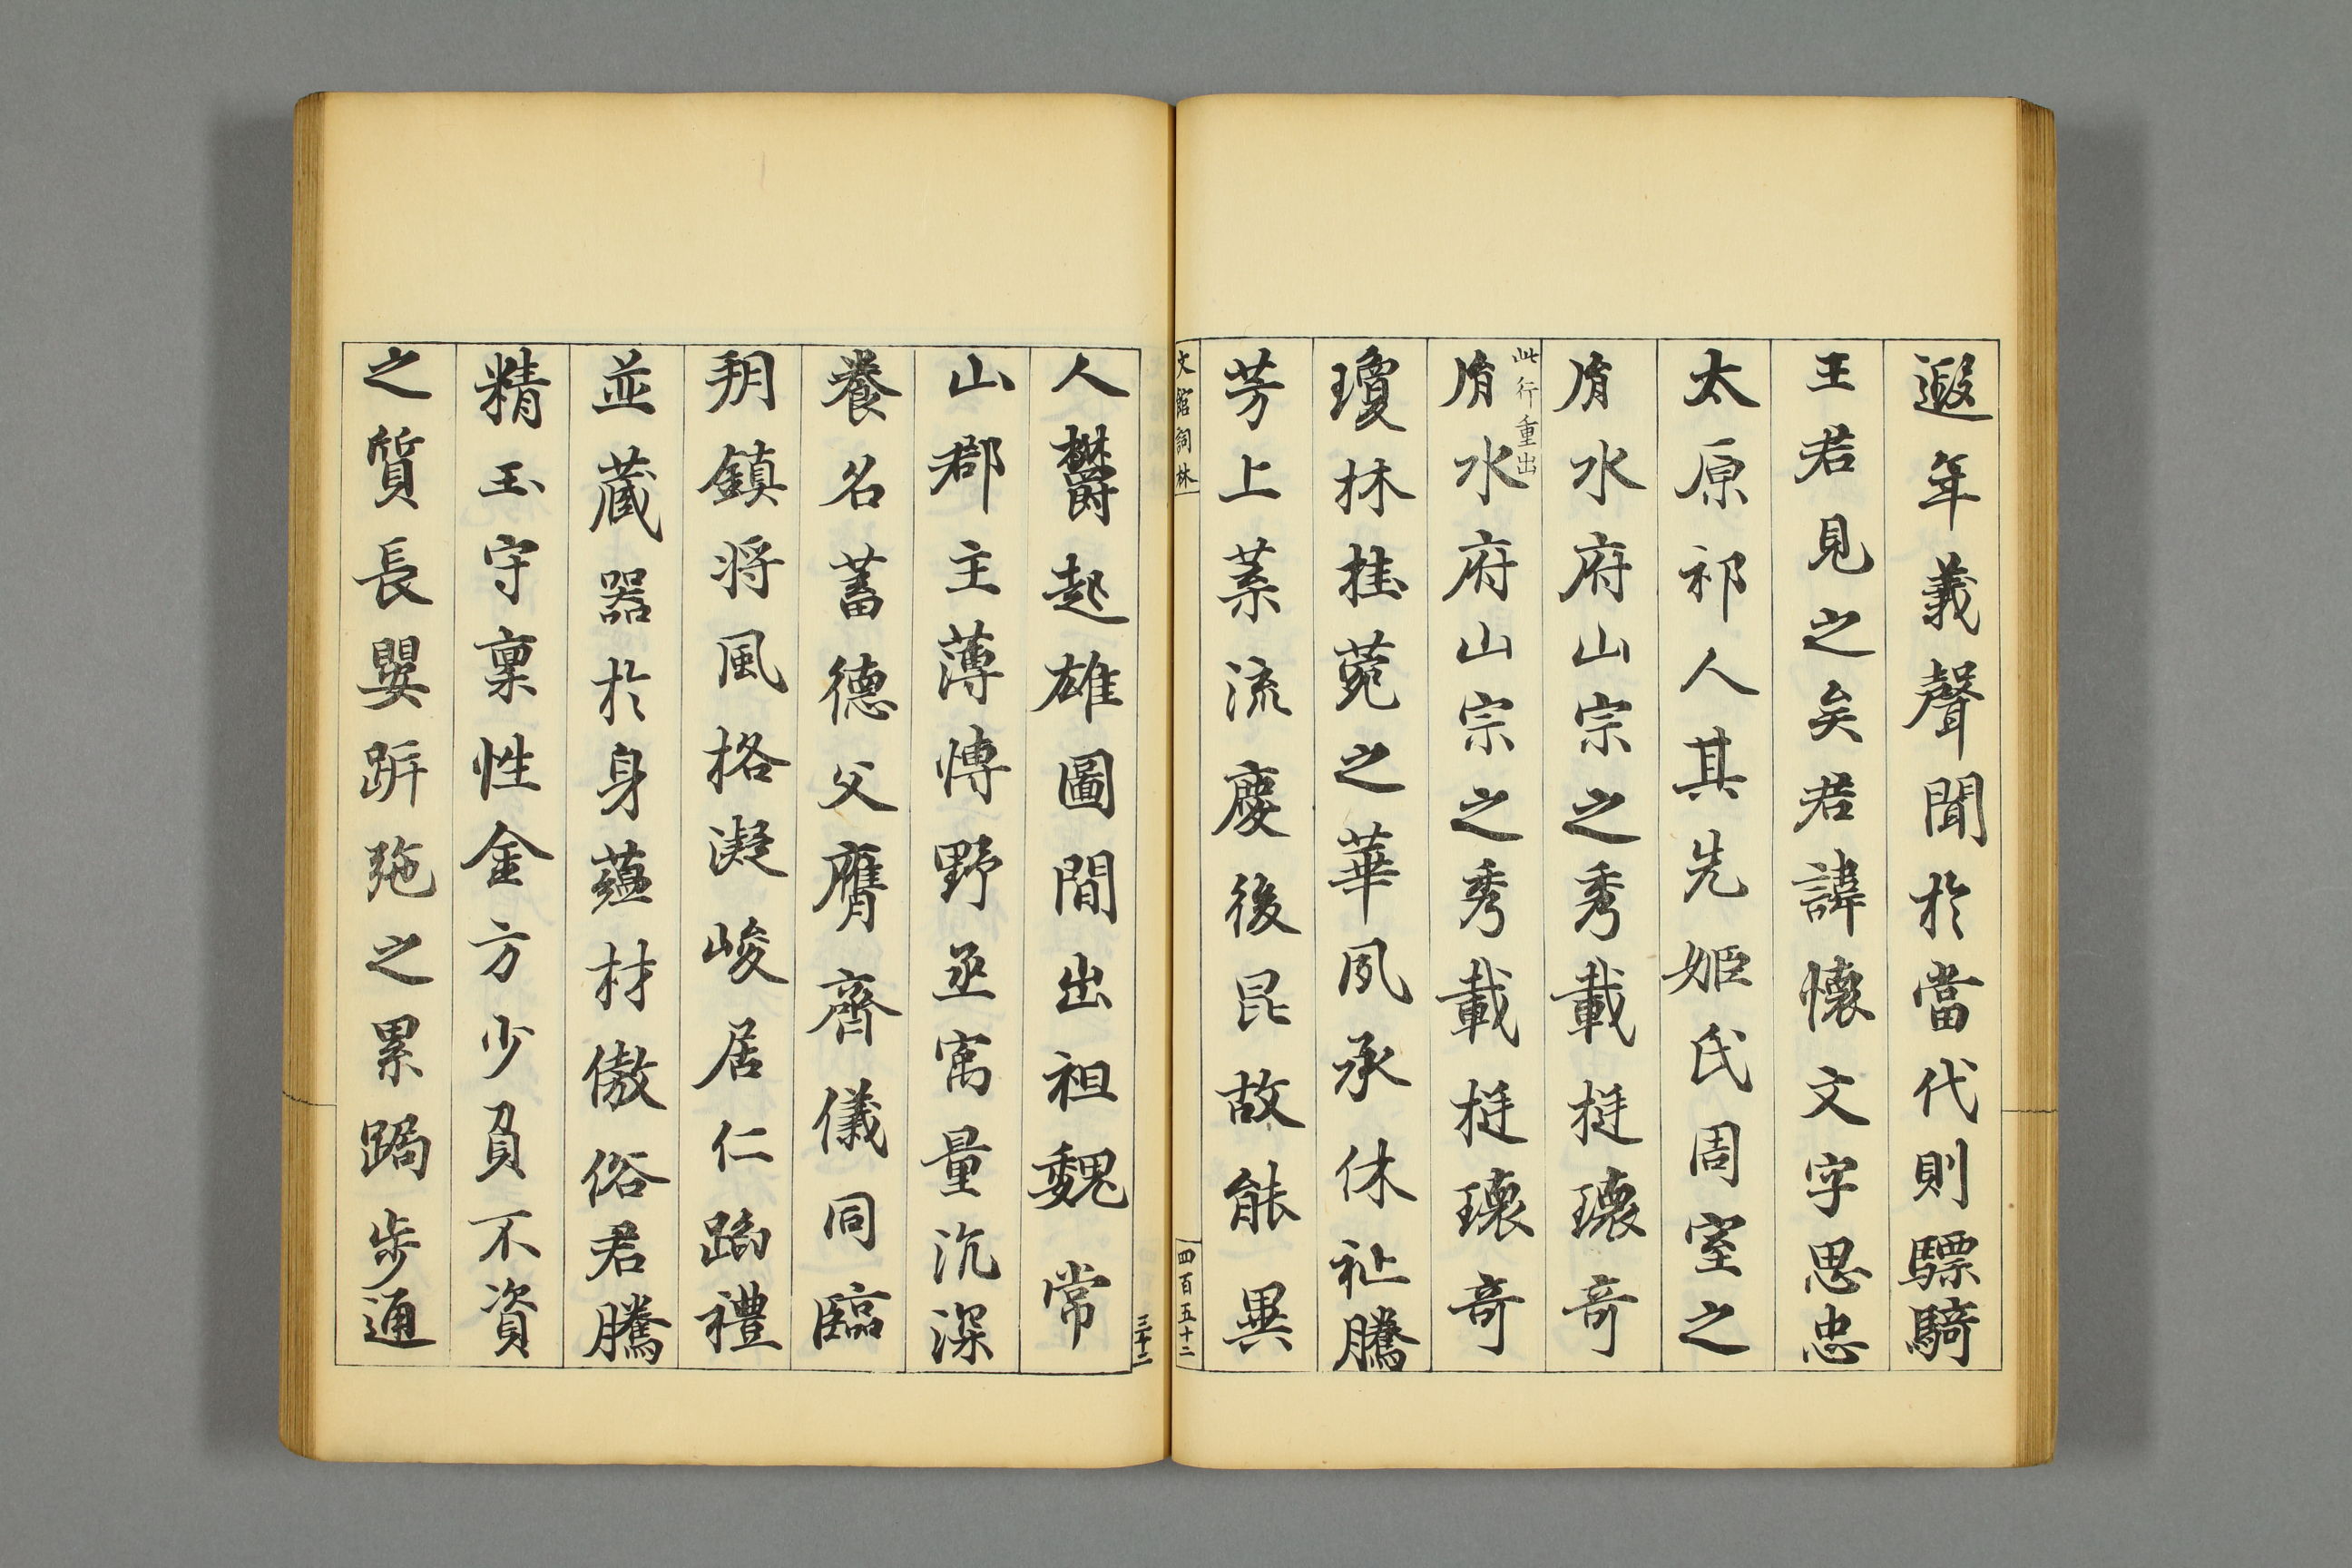 遐年義聲聞於當代則驃騎
王君見之矣君諱懷文字思忠
太原祁人其先姬氏周室之
㣧水府山宗之秀載挺瓌奇
此行重出
㣧水府山宗之秀載挺瓌奇
瓊林桂菀之華夙承休祉騰
芳上葉流慶後昆故能異
文館詞林
四百五十二
三十二
人欝起雄圖間出祖魏常
山郡主薄愽野丞寓量沉深
養名蓄德父膺齊儀同臨
玥鎮将風格凝峻居仁蹈禮
並蔵器於身藴材傲俗君騰
精玉守稟性金方少負不資
之質長嬰跰㢮之累跼步通